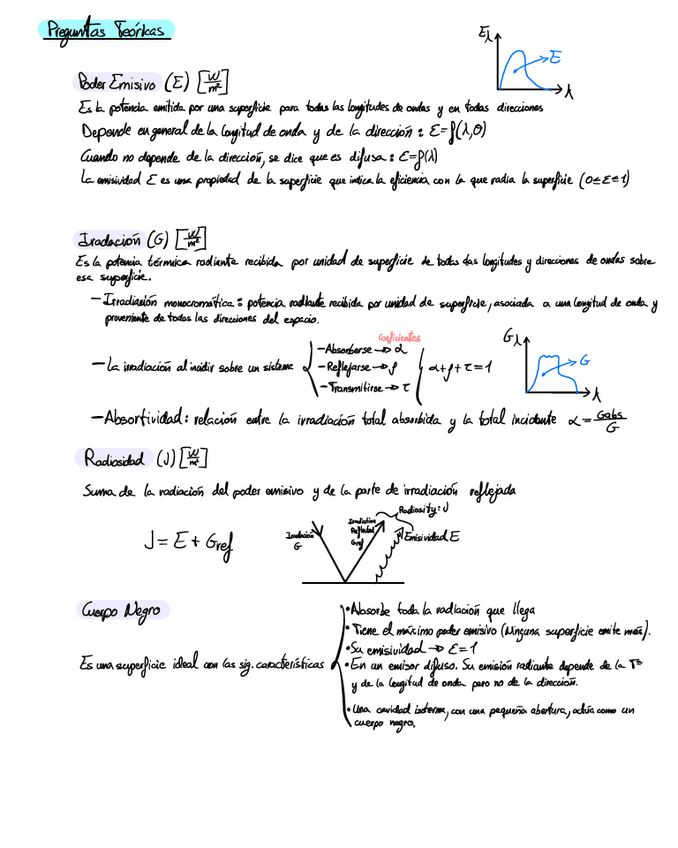 Preguntas Teóricas
Eλ
E
λ
Poder Emisivo (E) [W/m²]
Es la potencia emitida por una superficie para todas las longitudes de ondas y en todas direcciones
Depende en general de la longitud de onda y de la dirección: ε=f(λ,θ)
Cuando no depende de la dirección, se dice que es difusa: ε=f(λ)
La emisividad ε es una propiedad de la superficie que indica la eficiencia con la que radia la superficie (0≤ε≤1)
Iradación (G) [W/m²]
Es la potencia térmica radiante recibida por unidad de superficie de todas das longitudes y direcciones de ondas sobre
ese superficie.
- Irradiación monocromática: potencia radiante recibida por unidad de superficie, asociada a una longitud de onda y
proveniente de todas las direcciones del espacio.
Coeficientes
- La irradiación al incidir sobre un sistema
- Absorberse → α
- Reflejarse → ρ
- Transmitirse → τ
α+ρ+τ=1
Gλ
G
λ
- Absortividad: relación entre la irradiación total absorbida y la total incidente α = Gabs/G
Radiosidad (J) [W/m²]
Suma de la radiación del poder emisivo y de la parte de irradiación reflejada
J = E + Gref
Irradiación
G
Irradiation
Reflejada
Gref
Radiosity: J
Emisividad E
Cuerpo Negro
Es una superficie ideal con las sig. características
• Absorbe toda la radiación que llega
• Tiene el máximo poder emisivo (Ninguna superficie emite más).
• Su emisividad → ε=1
• En un emisor difuso. Su emisión radiante depende de la Tª
y de la longitud de onda pero no de la dirección.
• Una cavidad isoterma, con una pequeña abertura, actúa como un
cuerpo negro.